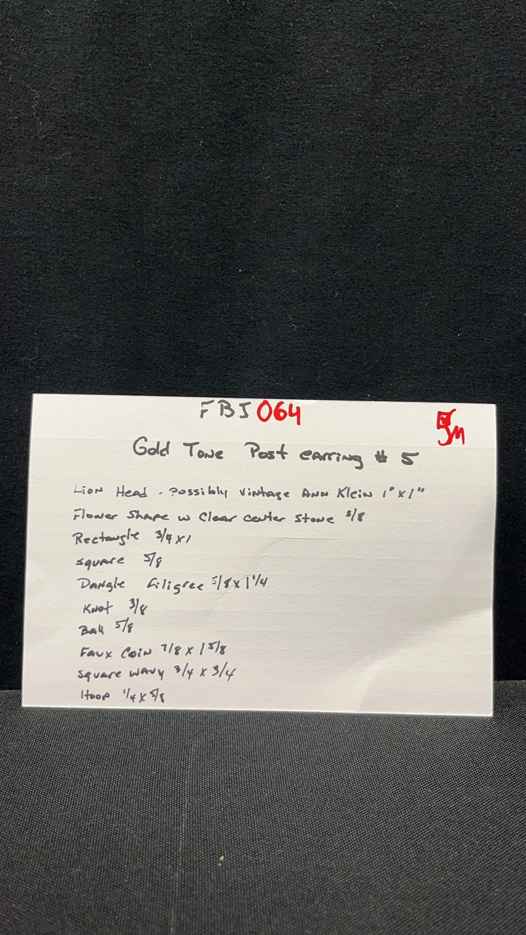 FBJ064
JM
Gold Tone Post earring # 5
Lion Head - Possibly vintage Ann Klein 1" x 1"
Flower Shape w Clear center Stone 5/8
Rectangle 3/4 x 1
square 5/8
Dangle filigree 5/8 x 1 1/4
Knot 3/8
Ball 5/8
Faux Coin 7/8 x 1 5/8
square wavy 3/4 x 3/4
Hoop 1/4 x 5/8